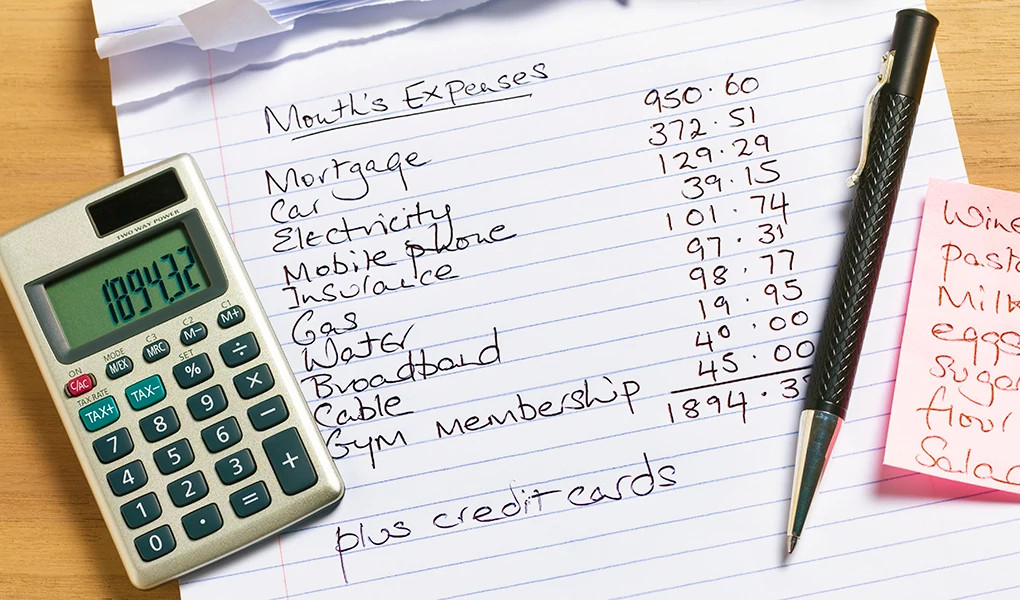 Month's Expenses
Mortgage 950.60
Car 372.51
Electricity 129.29
Mobile phone 39.15
Insurance 101.74
Gas 97.31
Water 98.77
Broadband 19.95
Cable 40.00
Gym membership 45.00
1894.3
plus credit cards
TWO WAY POWER
1894.32
ON MODE C3 C2 C1
C/AC M/EX MRC M− M+
TAX RATE SET
TAX+ TAX− % ÷
7 8 9 ×
4 5 6 −
1 2 3 +
0 . =
Wine
Milk
eggs